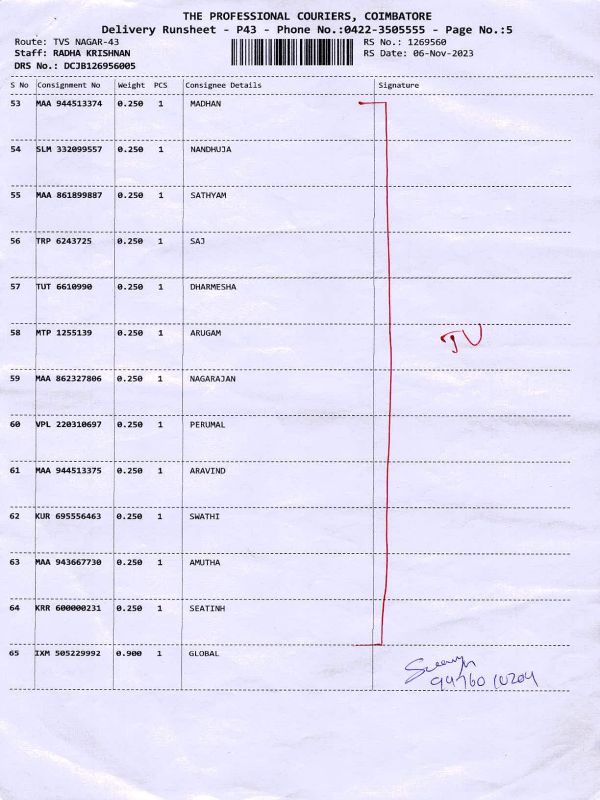 THE PROFESSIONAL COURIERS, COIMBATORE
Delivery Runsheet - P43 - Phone No.:0422-3505555 - Page No.:5
Route: TVS NAGAR-43 RS No.: 1269560
Staff: RADHA KRISHNAN RS Date: 06-Nov-2023
DRS No.: DCJB126956005
S No Consignment No Weight PCS Consignee Details Signature
53 MAA 944513374 0.250 1 MADHAN
54 SLM 332099557 0.250 1 NANDHUJA
55 MAA 861899887 0.250 1 SATHYAM
56 TRP 6243725 0.250 1 SAJ
57 TUT 6610990 0.250 1 DHARMESHA
58 MTP 1255139 0.250 1 ARUGAM TV
59 MAA 862327806 0.250 1 NAGARAJAN
60 VPL 220310697 0.250 1 PERUMAL
61 MAA 944513375 0.250 1 ARAVIND
62 KUR 695556463 0.250 1 SWATHI
63 MAA 943667730 0.250 1 AMUTHA
64 KRR 600000231 0.250 1 SEATINH
65 IXM 505229992 0.900 1 GLOBAL